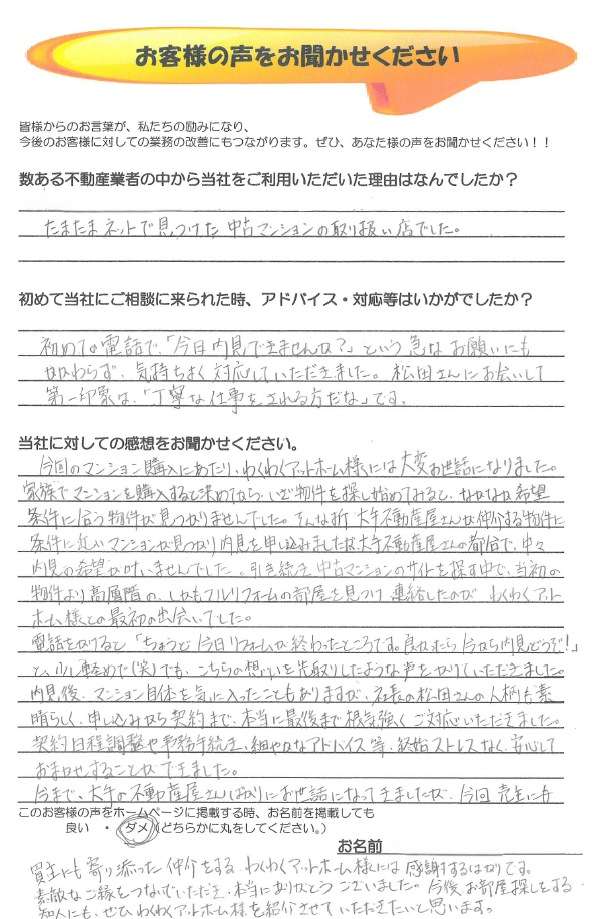 お客様の声をお聞かせください
皆様からのお言葉が、私たちの励みになり、
今後のお客様に対しての業務の改善にもつながります。ぜひ、あなた様の声をお聞かせください！！
数ある不動産業者の中から当社をご利用いただいた理由はなんでしたか？
たまたまネットで見つけた中古マンションの取り扱い店でした。
初めて当社にご相談に来られた時、アドバイス・対応等はいかがでしたか？
初めての電話で、「今日内見できませんか？」という急なお願いにも
かかわらず、気持ちよく対応していただきました。松田さんにお会いして
第一印象は、「丁寧な仕事をされる方だな」です。
当社に対しての感想をお聞かせください。
今回のマンション購入にあたり、わくわくアットホーム様には大変お世話になりました。
家族でマンションを購入すると決めてから、いざ物件を探し始めてみると、なかなか希望
条件に合う物件が見つかりませんでした。そんな折 大手不動産屋さんが仲介する物件に
条件に近いマンションが見つかり内見を申し込みましたが大手不動産屋さんの都合で、中々
内見の希望が叶いませんでした。引き続き、中古マンションのサイトを探す中で、当初の
物件より高層階の、しかもフルリフォームの部屋を見つけ 連絡したのが わくわくアット
ホーム様との最初の出会いでした。
電話をかけると「ちょうど今日リフォームが終わったところです。良かったら今から内見どうぞ！」
と、少し驚めで(笑)でも、こちらの想いを先取りしたような声をかけていただきました。
内見後、マンション自体を気に入ったこともありますが、社長の松田さんの人柄も素
晴らしく、申し込みから契約まで、本当に最後まで根気強くご対応いただきました。
契約日程調整や事務手続き、細やかなアドバイス等、終始ストレスなく、安心して
おまかせすることができました。
今まで、大手の不動産屋さんばかりにお世話になってきましたが、今回 売主にも
このお客様の声をホームページに掲載する時、お名前を掲載しても
良い ・ ダメ (どちらかに丸をしてください。)
お名前
買主にも寄り添った仲介をする わくわくアットホーム様には感謝するばかりです。
素敵なご縁をつないでいただき、本当にありがとうございました。今後お部屋探しをする
知人にも、ぜひわくわくアットホーム様を紹介させていただきたいと思います。